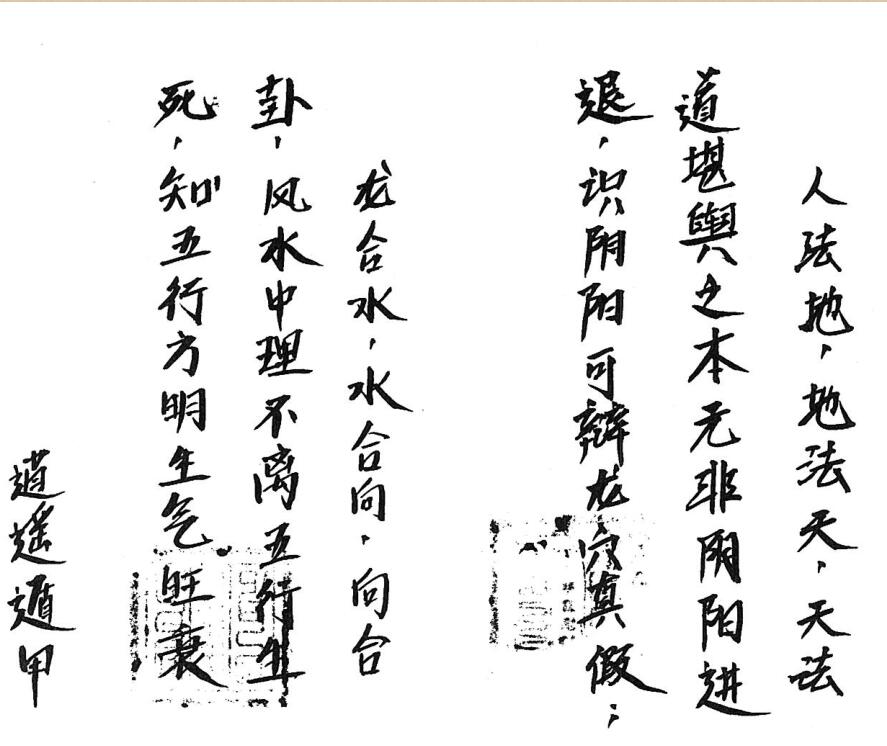 人法地，地法天，天法
道堪舆之本无非阴阳进
退，识阴阳可辩龙穴真假；
龙合水，水合向，向合
卦，风水中理不离五行生
死，知五行方明生气旺衰
逍遥遁甲